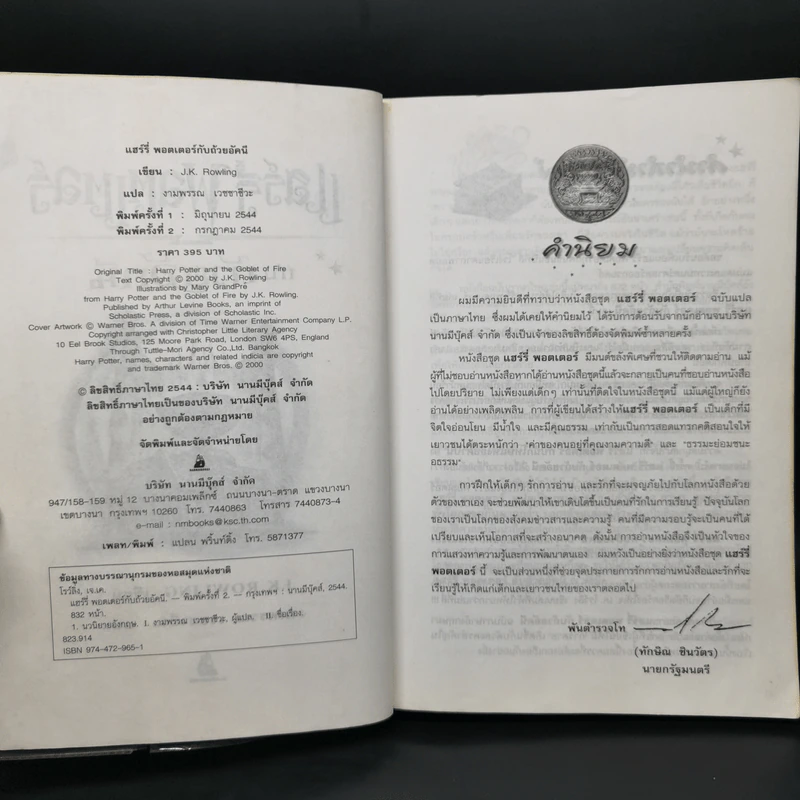 แฮร์รี่ พอตเตอร์กับถ้วยอัคนี
เขียน : J.K. Rowling
แปล : งามพรรณ เวชชาชีวะ
พิมพ์ครั้งที่ 1 : มิถุนายน 2544
พิมพ์ครั้งที่ 2 : กรกฎาคม 2544
ราคา 395 บาท
Original Title : Harry Potter and the Goblet of Fire
Text Copyright © 2000 by J.K. Rowling
Illustrations by Mary GrandPré
from Harry Potter and the Goblet of Fire by J.K. Rowling.
Published by Arthur Levine Books, an imprint of
Scholastic Press, a division of Scholastic Inc.
Cover Artwork © Warner Bros. A division of Time Warner Entertainment Company L.P.
Copyright arranged with Christopher Little Literary Agency
10 Eel Brook Studios, 125 Moore Park Road, London SW6 4PS, England
Through Tuttle-Mori Agency Co., Ltd. Bangkok
Harry Potter, names, characters and related indicia are copyright
and trademark Warner Bros. © 2000
© ลิขสิทธิ์ภาษาไทย 2544 : บริษัท นานมีบุ๊คส์ จำกัด
ลิขสิทธิ์ภาษาไทยเป็นของบริษัท นานมีบุ๊คส์ จำกัด
อย่างถูกต้องตามกฎหมาย
จัดพิมพ์และจัดจำหน่ายโดย
บริษัท นานมีบุ๊คส์ จำกัด
947/158-159 หมู่ 12 บางนาคอมเพล็กซ์ ถนนบางนา-ตราด แขวงบางนา
เขตบางนา กรุงเทพฯ 10260 โทร. 7440863 โทรสาร 7440873-4
e-mail : nmbooks@ksc.th.com
เพลท/พิมพ์ : แปลน พริ้นท์ติ้ง โทร. 5871377
ข้อมูลทางบรรณานุกรมของหอสมุดแห่งชาติ
โรว์ลิ่ง, เจ.เค.
แฮร์รี่ พอตเตอร์กับถ้วยอัคนี. — พิมพ์ครั้งที่ 2. — กรุงเทพฯ : นานมีบุ๊คส์, 2544.
832 หน้า.
1. นวนิยายอังกฤษ. I. งามพรรณ เวชชาชีวะ, ผู้แปล. II. ชื่อเรื่อง.
823.914
ISBN 974-472-965-1
คำนิยม
ผมมีความยินดีที่ทราบว่าหนังสือชุด แฮร์รี่ พอตเตอร์ ฉบับแปล
เป็นภาษาไทย ซึ่งผมได้เคยให้คำนิยมไว้ ได้รับการต้อนรับจากนักอ่านจนบริษัท
นานมีบุ๊คส์ จำกัด ซึ่งเป็นเจ้าของลิขสิทธิ์ต้องจัดพิมพ์ซ้ำหลายครั้ง
หนังสือชุด แฮร์รี่ พอตเตอร์ มีมนต์ขลังพิเศษที่ชวนให้ติดตามอ่าน แม้
ผู้ที่ไม่ชอบอ่านหนังสือหากได้อ่านหนังสือชุดนี้แล้วจะกลายเป็นคนที่ชอบอ่านหนังสือ
ไปโดยปริยาย ไม่เพียงแต่เด็กๆ เท่านั้นที่ติดใจในหนังสือชุดนี้ แม้แต่ผู้ใหญ่ก็ยัง
อ่านได้อย่างเพลิดเพลิน การที่ผู้เขียนได้สร้างให้แฮร์รี่ พอตเตอร์ เป็นเด็กที่มี
จิตใจอ่อนโยน มีน้ำใจ และมีคุณธรรม เท่ากับเป็นการสอดแทรกคติสอนใจให้
เยาวชนได้ตระหนักว่า "ค่าของคนอยู่ที่คุณงามความดี" และ "ธรรมะย่อมชนะ
อธรรม"
การฝึกให้เด็กๆ รักการอ่าน และรักที่จะผจญภัยไปกับโลกหนังสือด้วย
ตัวของเขาเอง จะช่วยพัฒนาให้เขาเติบโตขึ้นเป็นคนที่รักในการเรียนรู้ ปัจจุบันโลก
ของเราเป็นโลกของสังคมข่าวสารและความรู้ คนที่มีความรอบรู้จะเป็นคนที่ได้
เปรียบและเห็นโอกาสที่จะสร้างอนาคต ดังนั้น การอ่านหนังสือจึงเป็นหัวใจของ
การแสวงหาความรู้และการพัฒนาตนเอง ผมหวังเป็นอย่างยิ่งว่าหนังสือชุด แฮร์รี่
พอตเตอร์ นี้ จะเป็นส่วนหนึ่งที่ช่วยจุดประกายการรักการอ่านหนังสือและรักที่จะ
เรียนรู้ให้เกิดแก่เด็กและเยาวชนไทยของเราตลอดไป
พันตำรวจโท
(ทักษิณ ชินวัตร)
นายกรัฐมนตรี